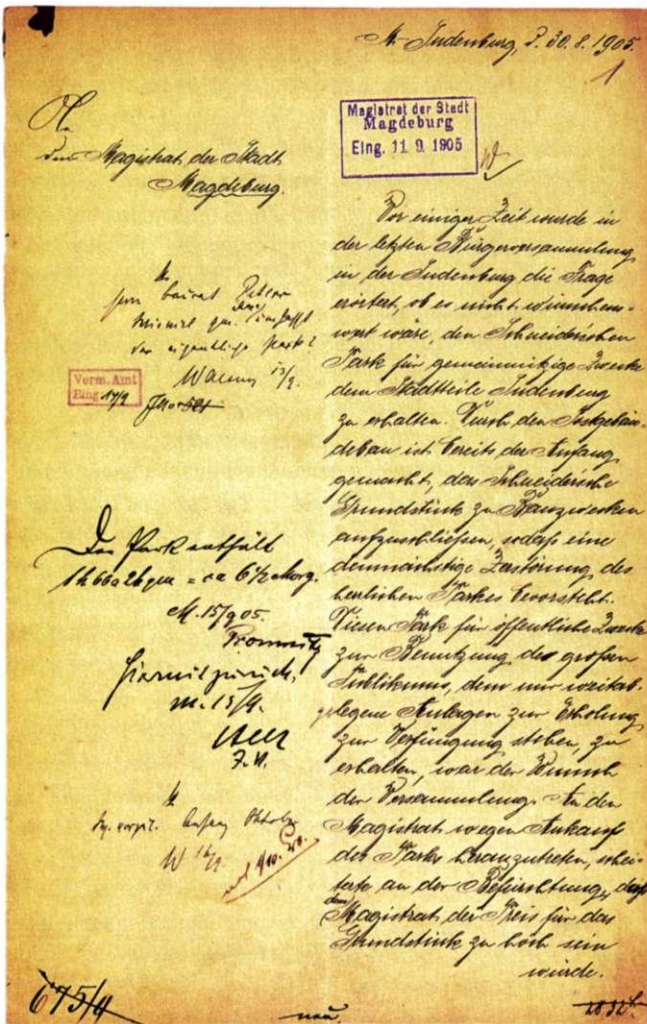 M. Sudenburg, d. 30.8.1905.
1
An
den Magistrat der Stadt
Magdeburg.
Magistrat der Stadt
Magdeburg
Eing. 11 9. 1905
Vor einiger Zeit wurde in
der letzten Bürgerversammlung
in der Sudenburg die Frage
erörtert, ob es nicht wünschens-
wert wäre, den Schneiderschen
Park für gemeinnützige Zwecke
dem Stadtteile Sudenburg
zu erhalten. Durch den Postgebäu-
debau ist bereits der Anfang
gemacht, das Schneidersche
Grundstück zu Bauzwecken
aufzuschließen, sodaß eine
demnächstige Zerstörung des
herrlichen Parkes bevorsteht.
Diesen Park für öffentliche Zwecke
zur Benutzung des großen
Publikums, dem nur weitab-
gelegene Anlagen zur Erholung
zur Verfügung stehen, zu
erhalten, war der Wunsch
der Versammlung. An den
Magistrat wegen Ankauf
des Parks heranzutreten, schei-
terte an der Befürchtung, daß
dem
Magistrat der Preis für das
Grundstück zu hoch sein
würde.
Herrn Baurat
wieviel qm
der eigentliche Park?
Verm. Amt
Eing. 14/9
Der Park enthält
1 h 66 a 26 qm = ca 6 1/2 Morg.
M. 15/9 05.
Hiermit zurück.
M. 15/9.
Anfang Oktober
W 16/9
675/4